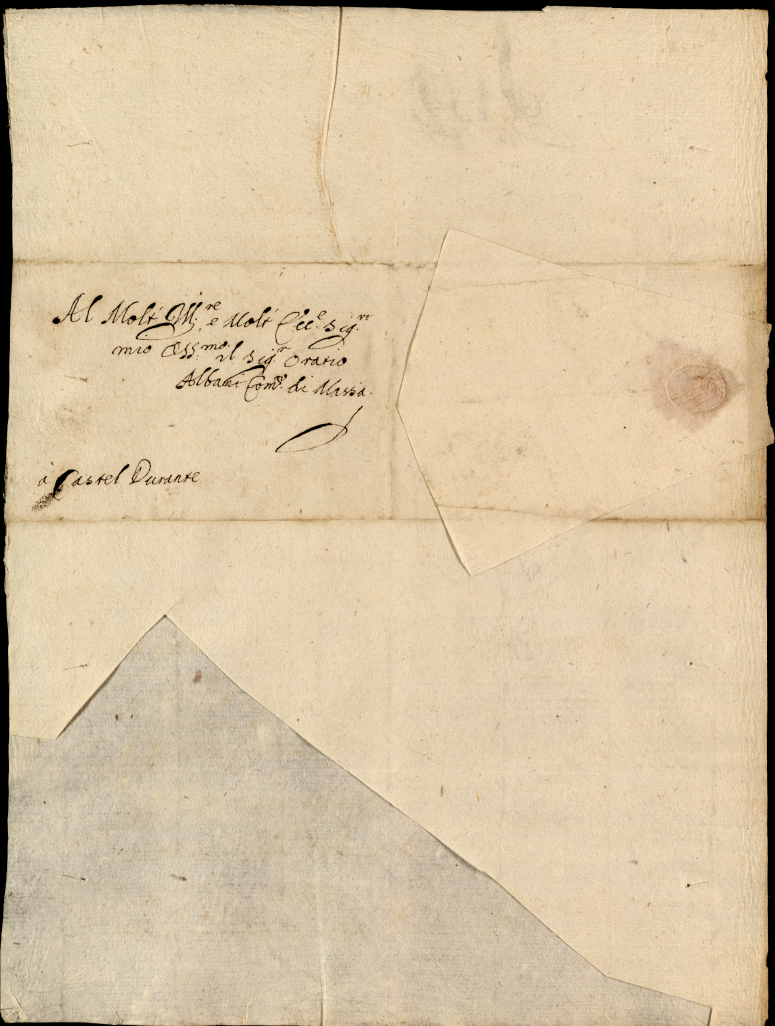 Al Molt' Ill.re e Molt' Ecc.e Sig.re
mio Oss.mo il Sig.r Oratio
Albani Com.o di Massa.
à Castel Durante